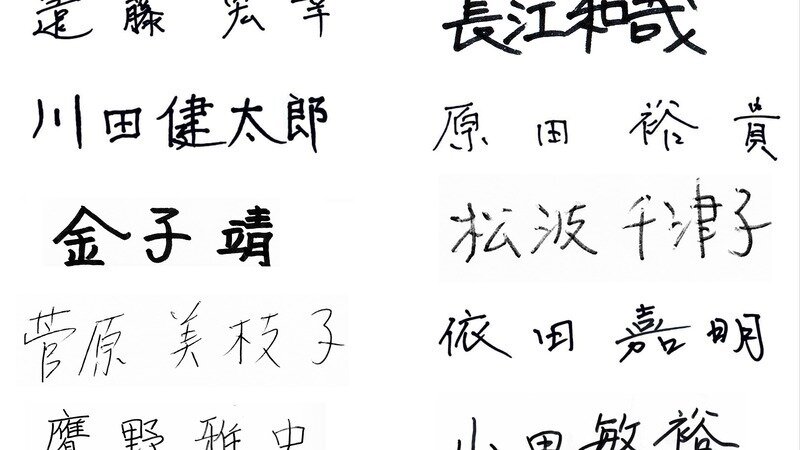 遠藤宏幸
川田健太郎
金子靖
菅原美枝子
鷹野雅史
長江和哉
原田裕貴
松波千津子
依田嘉明
小田敏裕